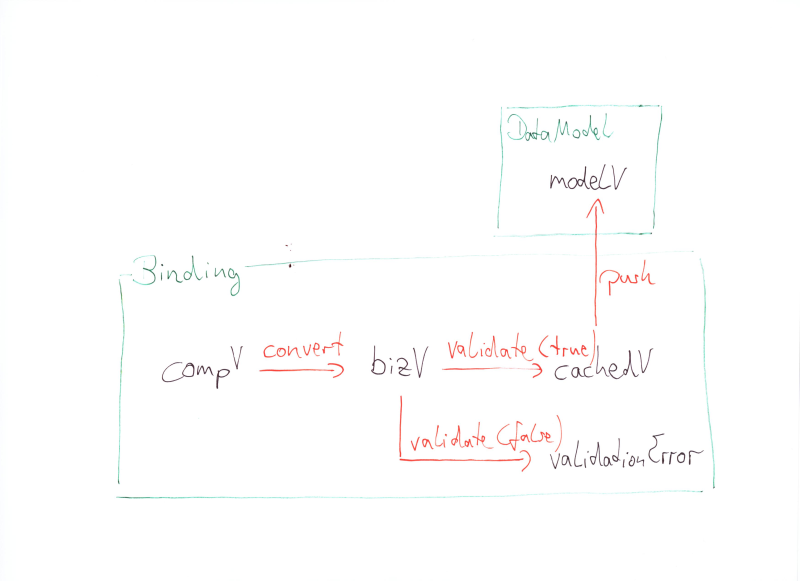 DataModel
modelV
Binding
push
compV
convert
bizV
validate (true)
cachedV
validate (false)
validationError